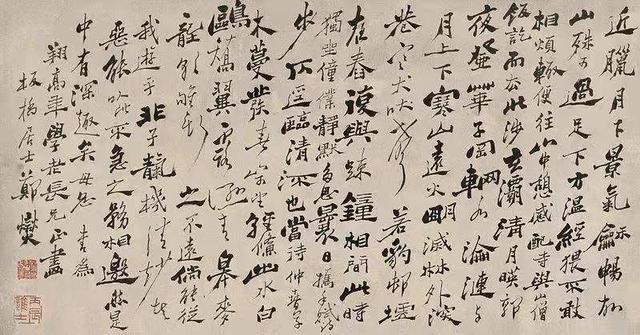 近臘月下景氣龢暢故
山殊可過足下方溫經猥不敢
相煩輒便往山中憩感配寺與山僧
飯訖而去北涉玄灞清月映郭
夜登華子岡輞水淪漣與
月上下寒山遠火明滅林外深
巷寒犬吠聲若豹邨墟
夜舂復與疎鐘相間此時
獨坐僮僕靜默多思曩日攜手賦詩
步仄逕臨清流也當待仲春草
木蔓發春山可望輕鯈出水白
鷗矯翼露溼青皋麥
隴朝雊斯之不遠倘能從
我遊乎非子天機清妙者
豈能以此不急之務相邀然是
中有深趣矣毋忽 書為
翔高年學老長兄正
板橋居士鄭燮